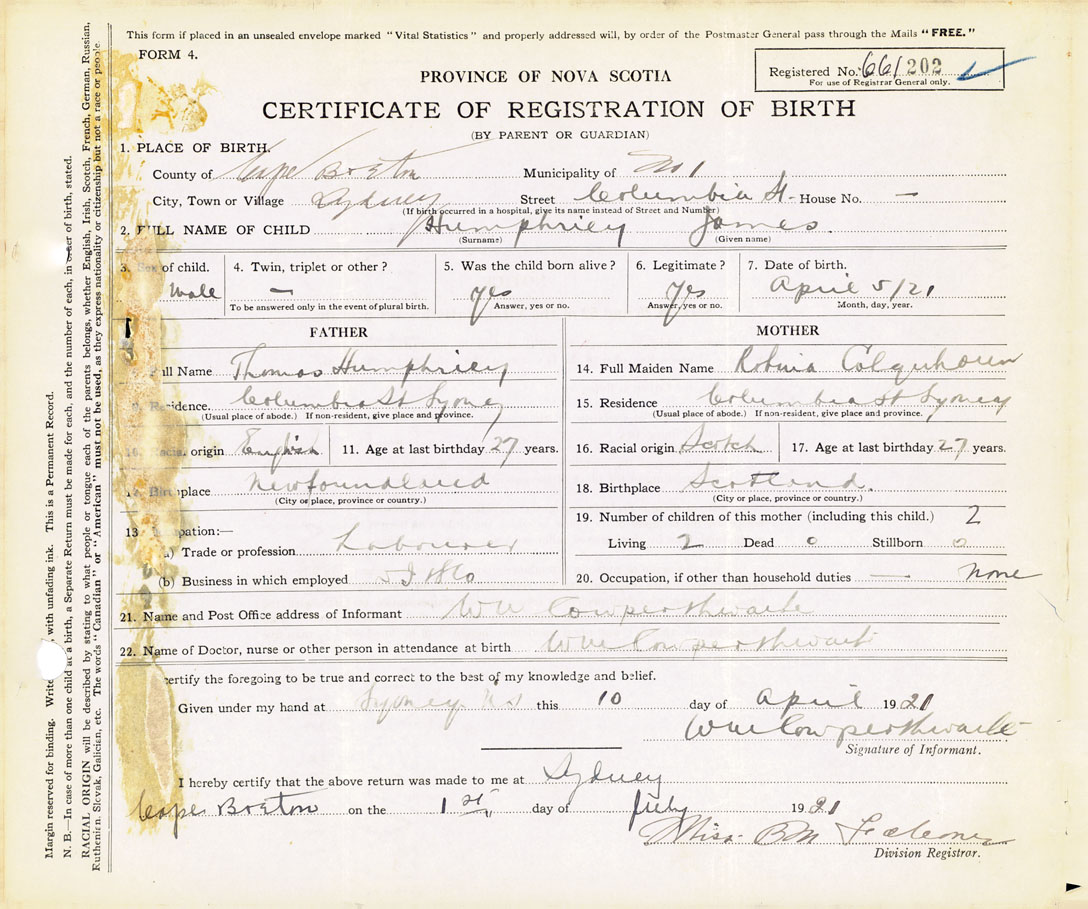 This form if placed in an unsealed envelope marked "Vital Statistics" and properly addressed will, by order of the Postmaster General pass through the Mails "FREE."
FORM 4.
Registered No. 661 202
For use of Registrar General only.
PROVINCE OF NOVA SCOTIA
CERTIFICATE OF REGISTRATION OF BIRTH
(BY PARENT OR GUARDIAN)
1. PLACE OF BIRTH.
County of Cape Breton Municipality of No 1
City, Town or Village Sydney Street Columbia St. House No. —
(If birth occurred in a hospital, give its name instead of Street and Number)
2. FULL NAME OF CHILD Humphriey James.
(Surname) (Given name)
3. Sex of child. 4. Twin, triplet or other? 5. Was the child born alive? 6. Legitimate? 7. Date of birth.
Male — yes yes April 5/21
To be answered only in the event of plural birth. Answer, yes or no. Answer, yes or no. Month, day, year.
FATHER MOTHER
Full Name Thomas Humphriey 14. Full Maiden Name Robina Colquhoun
9. Residence. Columbia St Sydney 15. Residence Columbia St Sydney
(Usual place of abode.) If non-resident, give place and province. (Usual place of abode.) If non-resident, give place and province.
10. Racial origin English 11. Age at last birthday 27 years. 16. Racial origin Scotch 17. Age at last birthday 27 years.
12. Birthplace Newfoundland 18. Birthplace Scotland.
(City or place, province or country.) (City or place, province or country.)
13. Occupation:— 19. Number of children of this mother (including this child.) 2
(a) Trade or profession Labourer Living 2 Dead 0 Stillborn 0
(b) Business in which employed 20. Occupation, if other than household duties — none
21. Name and Post Office address of Informant Wm Cowperthwaite
22. Name of Doctor, nurse or other person in attendance at birth Wm Cowperthwait
certify the foregoing to be true and correct to the best of my knowledge and belief.
Given under my hand at Sydney N.S this 10 day of April 1921
Wm Cowperthwaite
Signature of Informant.
I hereby certify that the above return was made to me at Sydney
Cape Breton on the 1st day of July 1921
Miss. B M
Division Registrar.
Margin reserved for binding. Write with unfading ink. This is a Permanent Record.
N. B.—In case of more than one child at a birth, a Separate Return must be made for each, and the number of each, in order of birth, stated.
RACIAL ORIGIN will be described by stating to what people or tongue each of the parents belongs, whether English, Irish, Scotch, French, German, Russian,
Ruthenian, Slovak, Galician, etc. The words "Canadian" or "American" must not be used, as they express nationality or citizenship but not a race or people.